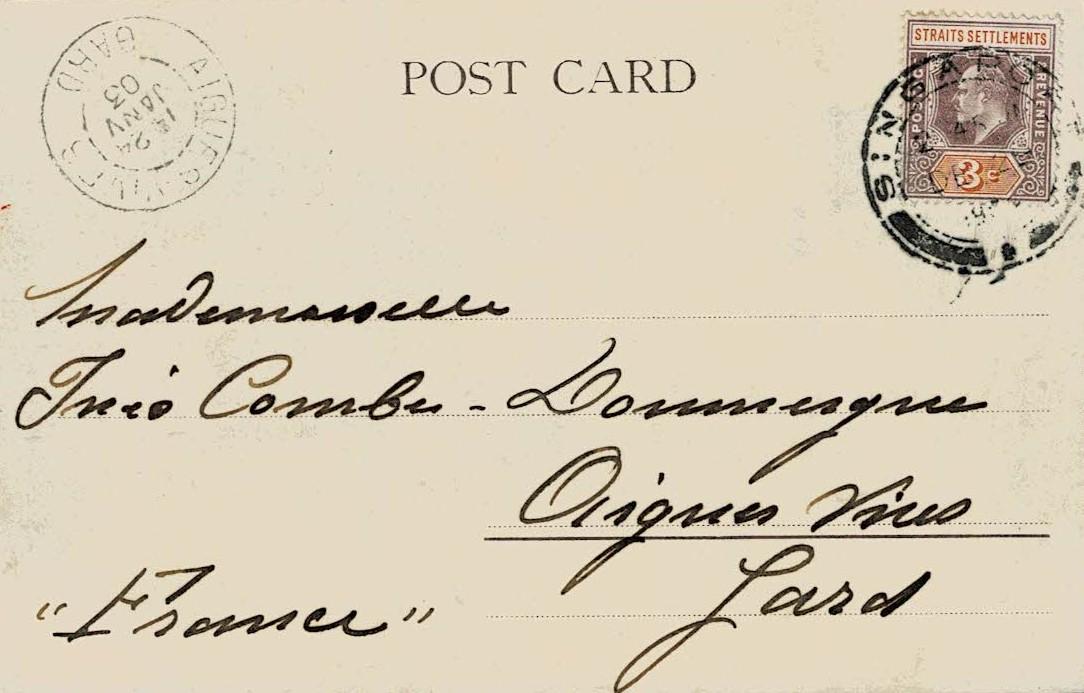 POST CARD
STRAITS SETTLEMENTS
POSTAGE REVENUE
3c
SINGAPORE
AIGUES-VIVES
GARD
24
JANV
03
Mademoiselle
Inès Combes - Doumergue
Aigues Vives
Gard
"France"